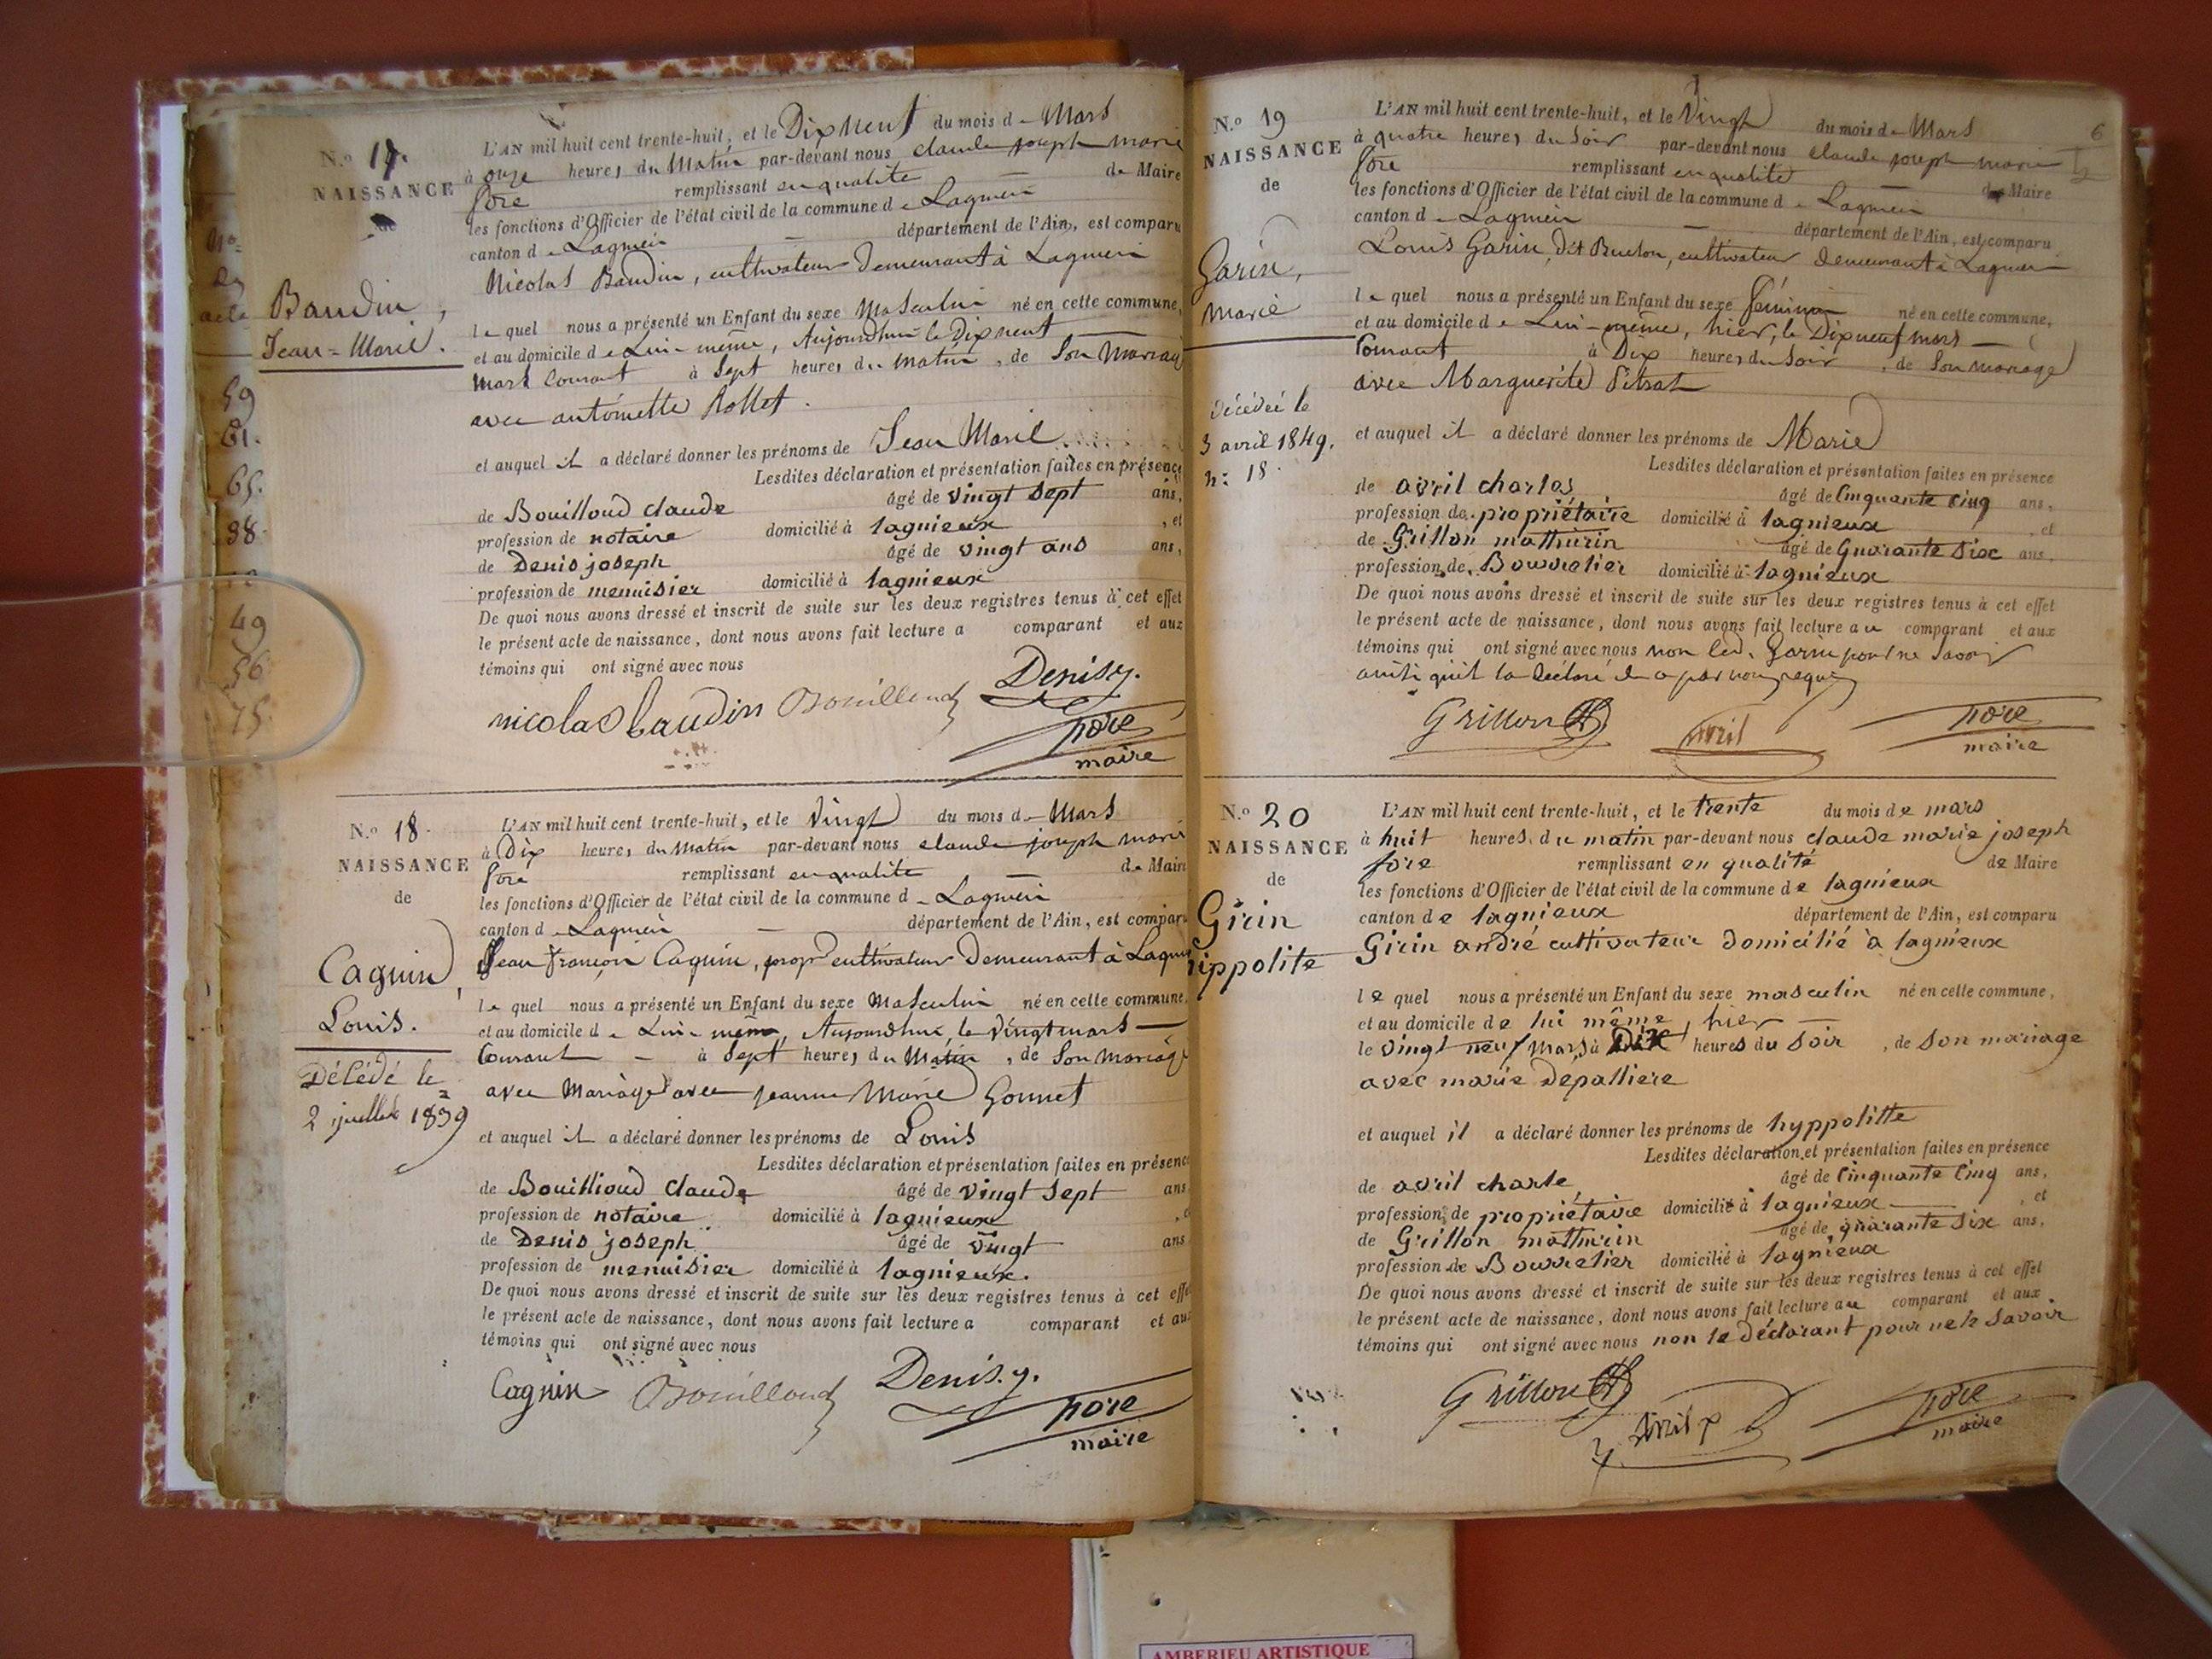 N.º 17.
NAISSANCE
de
Baudin,
Jean=Marie.
Nº
acte
59
61.
65.
98.
49
56
75
L'AN mil huit cent trente-huit, et le Dix neuf du mois de Mars
à onze heures du Matin par-devant nous claude joseph marie
fore remplissant en qualité de Maire
les fonctions d'Officier de l'état civil de la commune de Lagnieu
canton de Lagnieu département de l'Ain, est comparu
Nicolas Baudin, cultivateur demeurant à Lagnieu
le quel nous a présenté un Enfant du sexe Masculin né en cette commune,
et au domicile de Lui-même, Aujourdhui le Dix neuf
Mars Courant à Sept heures du matin, de Son Mariage
avec antoinette Rollet.
et auquel il a déclaré donner les prénoms de Jean Marie.
Lesdites déclaration et présentation faites en présence
de Bouilloud claude âgé de vingt sept ans,
profession de notaire domicilié à lagnieux, et
de Denis joseph âgé de vingt ans ans,
profession de menuisier domicilié à lagnieux
De quoi nous avons dressé et inscrit de suite sur les deux registres tenus à cet effet
le présent acte de naissance, dont nous avons fait lecture a comparant et aux
témoins qui ont signé avec nous
nicolas baudin Bouilloud Denis j.
fore
maire
N.º 18.
NAISSANCE
de
Caguin,
Louis.
Décédé le
2 juillet 1839
L'AN mil huit cent trente-huit, et le Vingt du mois de Mars
à Dix heures du Matin par-devant nous claude joseph marie
fore remplissant en qualité de Maire
les fonctions d'Officier de l'état civil de la commune de Lagnieu
canton de Lagnieu département de l'Ain, est comparu
Jean françois Caguin, propre cultivateur Demeurant à Lagnieu
le quel nous a présenté un Enfant du sexe Masculin né en cette commune,
et au domicile de Lui-même, Aujourdhui, le Vingt mars
Courant à Sept heures du Matin, de Son Mariage
avec Mariage avec jeanne Marie Gonnet
et auquel il a déclaré donner les prénoms de Louis
Lesdites déclaration et présentation faites en présence
de Bouillioud claude âgé de vingt sept ans
profession de notaire domicilié à lagnieux
de Denis joseph âgé de vingt ans
profession de menuisier domicilié à lagnieux.
De quoi nous avons dressé et inscrit de suite sur les deux registres tenus à cet effet
le présent acte de naissance, dont nous avons fait lecture a comparant et aux
témoins qui ont signé avec nous
Caguin Bouilloud Denis. j.
fore
maire
6
N.º 19
NAISSANCE
de
Garin,
Marie
Décédée le
3 avril 1849.
nº 18.
L'AN mil huit cent trente-huit, et le Vingt du mois de Mars
à quatre heures du Soir par-devant nous claude joseph marie
fore remplissant en qualité de Maire
les fonctions d'Officier de l'état civil de la commune de Lagnieu
canton de Lagnieu département de l'Ain, est comparu
Louis Garin, Dit Buclon, cultivateur demeurant à Lagnieu
le quel nous a présenté un Enfant du sexe féminin né en cette commune,
et au domicile de Lui-même, hier, le Dix neuf mars
Courant à Dix heures du Soir, de Son mariage
avec Marguerite Pitrat
et auquel il a déclaré donner les prénoms de Marie
Lesdites déclaration et présentation faites en présence
de avril charles âgé de Cinquante Cinq ans,
profession de propriétaire domicilié à lagnieux, et
de Grillon mathurin âgé de Quarante Six ans,
profession de Bourrelier domicilié à lagnieux
De quoi nous avons dressé et inscrit de suite sur les deux registres tenus à cet effet
le présent acte de naissance, dont nous avons fait lecture au comparant et aux
témoins qui ont signé avec nous non led. Garin pour ne savoir
ainsi qu'il la déclaré de a par nous requis
Grillon avril fore
maire
N.º 20
NAISSANCE
de
Girin
hippolite
L'AN mil huit cent trente-huit, et le trente du mois de mars
à huit heures du matin par-devant nous claude marie joseph
fore remplissant en qualité de Maire
les fonctions d'Officier de l'état civil de la commune de lagnieux
canton de lagnieux département de l'Ain, est comparu
Girin andré cultivateur domicilié à lagnieux
le quel nous a présenté un Enfant du sexe masculin né en cette commune,
et au domicile de lui même, hier
le vingt neuf Mars à Dix heures du Soir, de Son mariage
avec marie depalliere
et auquel il a déclaré donner les prénoms de hyppolitte
Lesdites déclaration et présentation faites en présence
de avril charle âgé de Cinquante Cinq ans,
profession de propriétaire domicilié à lagnieux, et
de Grillon mathurin âgé de quarante Six ans,
profession de Bourrelier domicilié à lagnieux
De quoi nous avons dressé et inscrit de suite sur les deux registres tenus à cet effet
le présent acte de naissance, dont nous avons fait lecture au comparant et aux
témoins qui ont signé avec nous non le déclarant pour ne le Savoir
Grillon avril fore
maire
AMBERIEU ARTISTIQUE